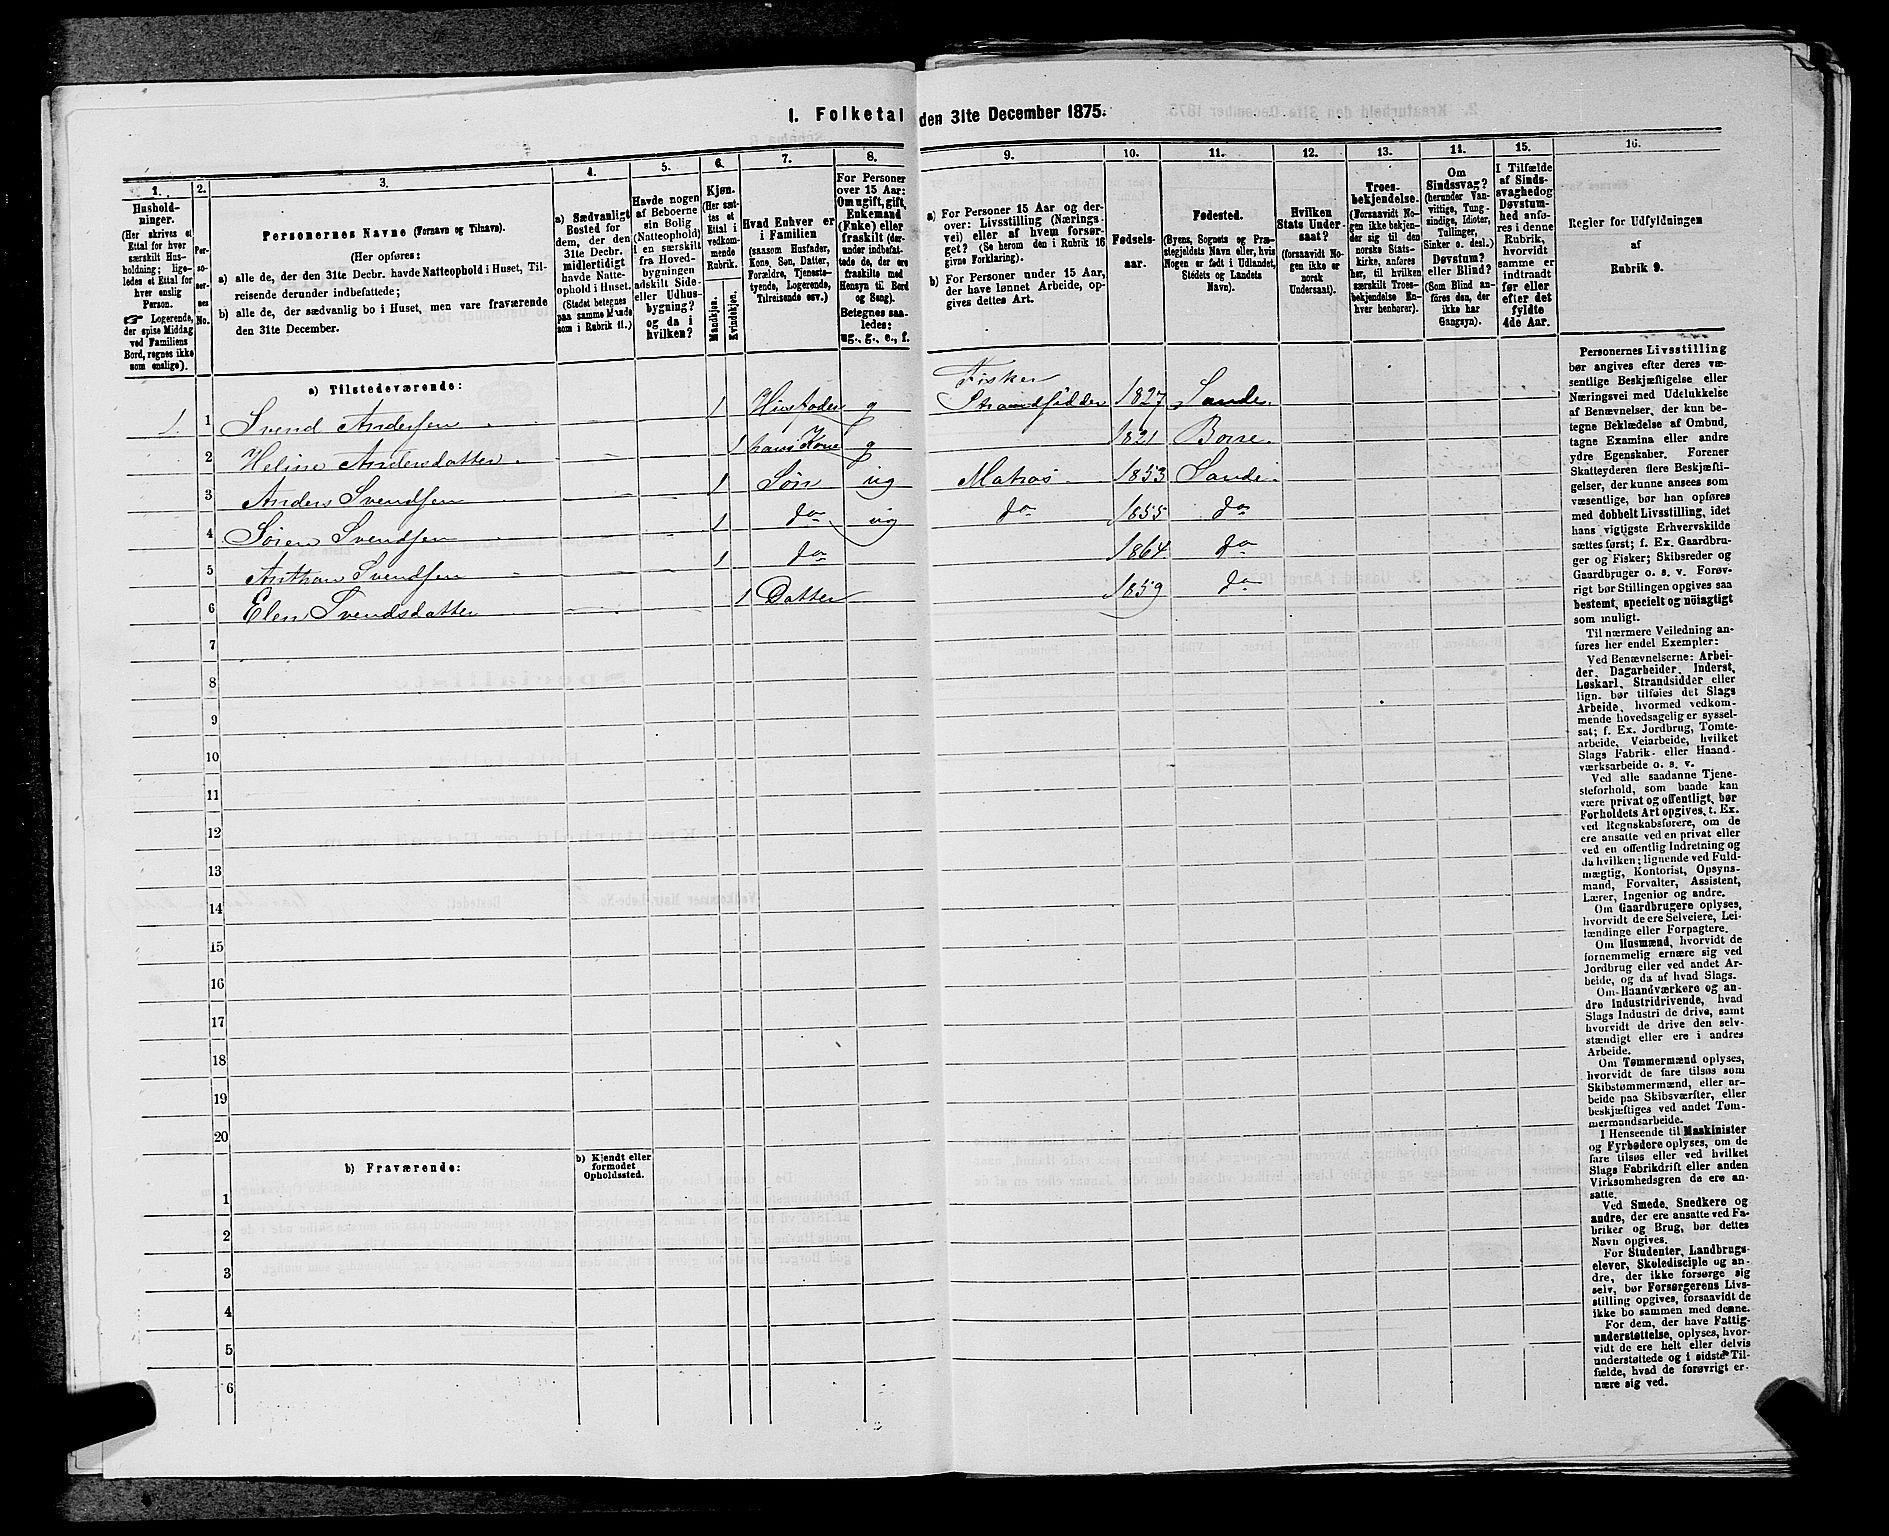 1. Folketal den 31te December 1875.
1.
Hushold-
ninger.
(Her skrives et
Ettal for hver
særskilt Hus-
holdning; lige-
ledes et Ettal for
hver enslig
Person.
☞ Logerende,
der spise Middag
ved Familiens
Bord, regnes ikke
som enslige).
2.
Per-
so-
ner-
nes
No.
3.
Personernes Navne (Fornavn og Tilnavn).
(Her opføres:
a) alle de, der den 31te Decbr. havde Natteophold i Huset, Til-
reisende derunder indbefattede;
b) alle de, der sædvanlig bo i Huset, men vare fraværende
den 31te December.
4.
a) Sædvanligt
Bosted for
dem, der den
31te Decbr.
midlertidigt
havde Natte-
ophold i Huset.
(Stedet betegnes
paa samme Maade
som i Rubrik 11.)
5.
Havde nogen
af Beboerne
sin Bolig
(Natteophold)
i en særskilt
fra Hoved-
bygningen
adskilt Side-
eller Udhus-
bygning?
og da i
hvilken?
6.
Kjøn.
(Her sæt-
tes et
Ettal i
vedkom-
mende
Rubrik.
Mandkjøn.
Kvindekjøn.
7.
Hvad Enhver er
i Familien
(saasom Husfader,
Kone, Søn, Datter,
Forældre, Tjeneste-
tyende, Logerende,
Tilreisende osv.)
8.
For Personer
over 15 Aar:
Om ugift, gift,
Enkemand
(Enke) eller
fraskilt (der-
under indbefat-
tede de, der ere
fraskilte med
Hensyn til Bord
og Seng).
Betegnes saa-
ledes:
ug., g., e., f.
9.
a) For Personer 15 Aar og der-
over: Livsstilling (Nærings-
vei) eller af hvem forsør-
get? (Se herom den i Rubrik 16
givne Forklaring).
b) For Personer under 15 Aar,
der have lønnet Arbeide, op-
gives dettes Art.
10.
Fødsels-
aar.
11.
Fødested.
(Byens, Sognets og Præ-
stegjeldets Navn eller, hvis
Nogen er født i Udlandet,
Stedets og Landets
Navn).
12.
Hvilken
Stats Under-
saat?
(forsaavidt No-
gen ikke er
norsk
Undersaat).
13.
Troes-
bekjendelse.
(Forsaavidt No-
gen ikke bekjen-
der sig til den
norske Stats-
kirke, anføres
her, til hvilken
særskilt Troes-
bekjendelse En-
hver henhører).
14.
Om
Sindssvag?
(herunder Van-
vittige, Tung-
sindige, Idioter,
Tullinger,
Sinker o. desl.)
Døvstum?
eller Blind?
(Som Blind an-
føres den, der
ikke har
Gangsyn).
15.
I Tilfælde
af Sinds-
svaghed og
Døvstum-
hed anfø-
res i denne
Rubrik,
hvorvidt
samme er
indtraadt
før eller
efter det
fyldte
4de Aar.
16.
Regler for Udfyldningen
af
Rubrik 9.
a) Tilstedeværende:
1. 1 Svend Andersen 1 Husfader g Fisker Strandsidder 1827 Sande.
2 Heline Andersdatter 1 hans Kone g 1821 Borre.
3 Anders Svendsen 1 Søn ug Matros 1853 Sande.
4 Søren Svendsen 1 do ug do 1855 do
5 Anthon Svendsen 1 do 1864 do
6 Elen Svendsdatter 1 Datter 1859 do
7
8
9
10
11
12
13
14
15
16
17
18
19
20
b) Fraværende:
b) Kjendt eller
formodet
Opholdssted.
1
2
3
4
5
6
Personernes Livsstilling
bør angives efter deres væ-
sentlige Beskjæftigelse eller
Næringsvei med Udelukkelse
af Benævnelser, der kun be-
tegne Beklædelse af Ombud,
tagne Examina eller andre
ydre Egenskaber. Forener
Skatteyderen flere Beskjæfti-
gelser, der kunne ansees som
væsentlige, bør han opføres
med dobbelt Livsstilling, idet
hans vigtigste Erhvervskilde
sættes først; f. Ex. Gaardbru-
ger og Fisker; Skibsreder og
Gaardbruger o. s. v. Forøv-
rigt bør Stillingen opgives saa
bestemt, specielt og nøiagtigt
som muligt.
Til nærmere Veiledning an-
føres her endel Exempler:
Ved Benævnelserne: Arbei-
der, Dagarbeider, Inderst,
Løskarl, Strandsidder eller
lign. bør tilføies det Slags
Arbeide, hvormed vedkom-
mende hovedsagelig er syssel-
sat; f. Ex. Jordbrug, Tomte-
arbeide, Veiarbeide, hvilket
Slags Fabrik- eller Haand-
værksarbeide o. s. v.
Ved alle saadanne Tjene-
steforhold, som baade kan
være privat og offentligt, bør
Forholdets Art opgives, t. Ex.
ved Regnskabsførere, om de
ere ansatte ved en privat eller
ved en offentlig Indretning og
da hvilken; lignende ved Fuld-
mægtig, Kontorist, Opsyns-
mand, Forvalter, Assistent,
Lærer, Ingeniør og andre.
Om Gaardbrugere oplyses,
hvorvidt de ere Selveiere, Lei-
lændinge eller Forpagtere.
Om Husmænd, hvorvidt de
fornemmelig ernære sig ved
Jordbrug eller ved andet Ar-
beide, og da af hvad Slags.
Om Haandværkere og an-
dre Industridrivende, hvad
Slags Industri de drive, samt
hvorvidt de drive den selv-
stændigt eller ere i andres
Arbeide.
Om Tømmermænd oplyses,
hvorvidt de fare tilsøs som
Skibstømmermænd, eller ar-
beide paa Skibsværfter, eller
beskjæftiges ved andet Tøm-
mermandsarbeide.
I Henseende til Maskinister
og Fyrbødere oplyses, om de
fare tilsøs eller ved hvilket
Slags Fabrikdrift eller anden
Virksomhedsgren de ere an-
satte.
Ved Smede, Snedkere og
andre, der ere ansatte ved Fa-
briker og Brug, bør dettes
Navn opgives.
For Studenter, Landbrugs-
elever, Skoledisciple og an-
dre, der ikke forsørge sig
selv, bør Forsørgerens Livs-
stilling opgives, forsaavidt de
ikke bo sammen med denne.
For dem, der have Fattig-
understøttelse, oplyses, hvor-
vidt de ere helt eller delvis
understøttede og i sidste Til-
fælde, hvad de forøvrigt er-
nære sig ved.